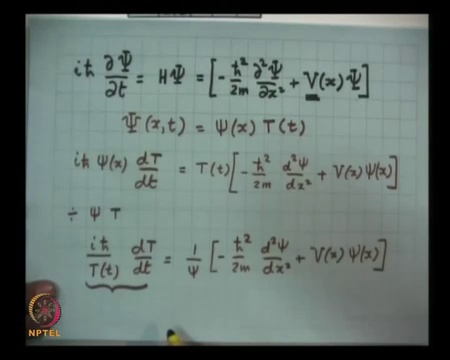 iℏ ∂Ψ/∂t = HΨ = [-ℏ²/2m ∂²Ψ/∂x² + V(x)Ψ]
Ψ(x,t) = ψ(x) T(t)
iℏ ψ(x) dT/dt = T(t)[-ℏ²/2m d²ψ/dx² + V(x)ψ(x)]
÷ ψ T
iℏ/T(t) dT/dt = 1/ψ [-ℏ²/2m d²ψ/dx² + V(x) ψ(x)]
NPTEL